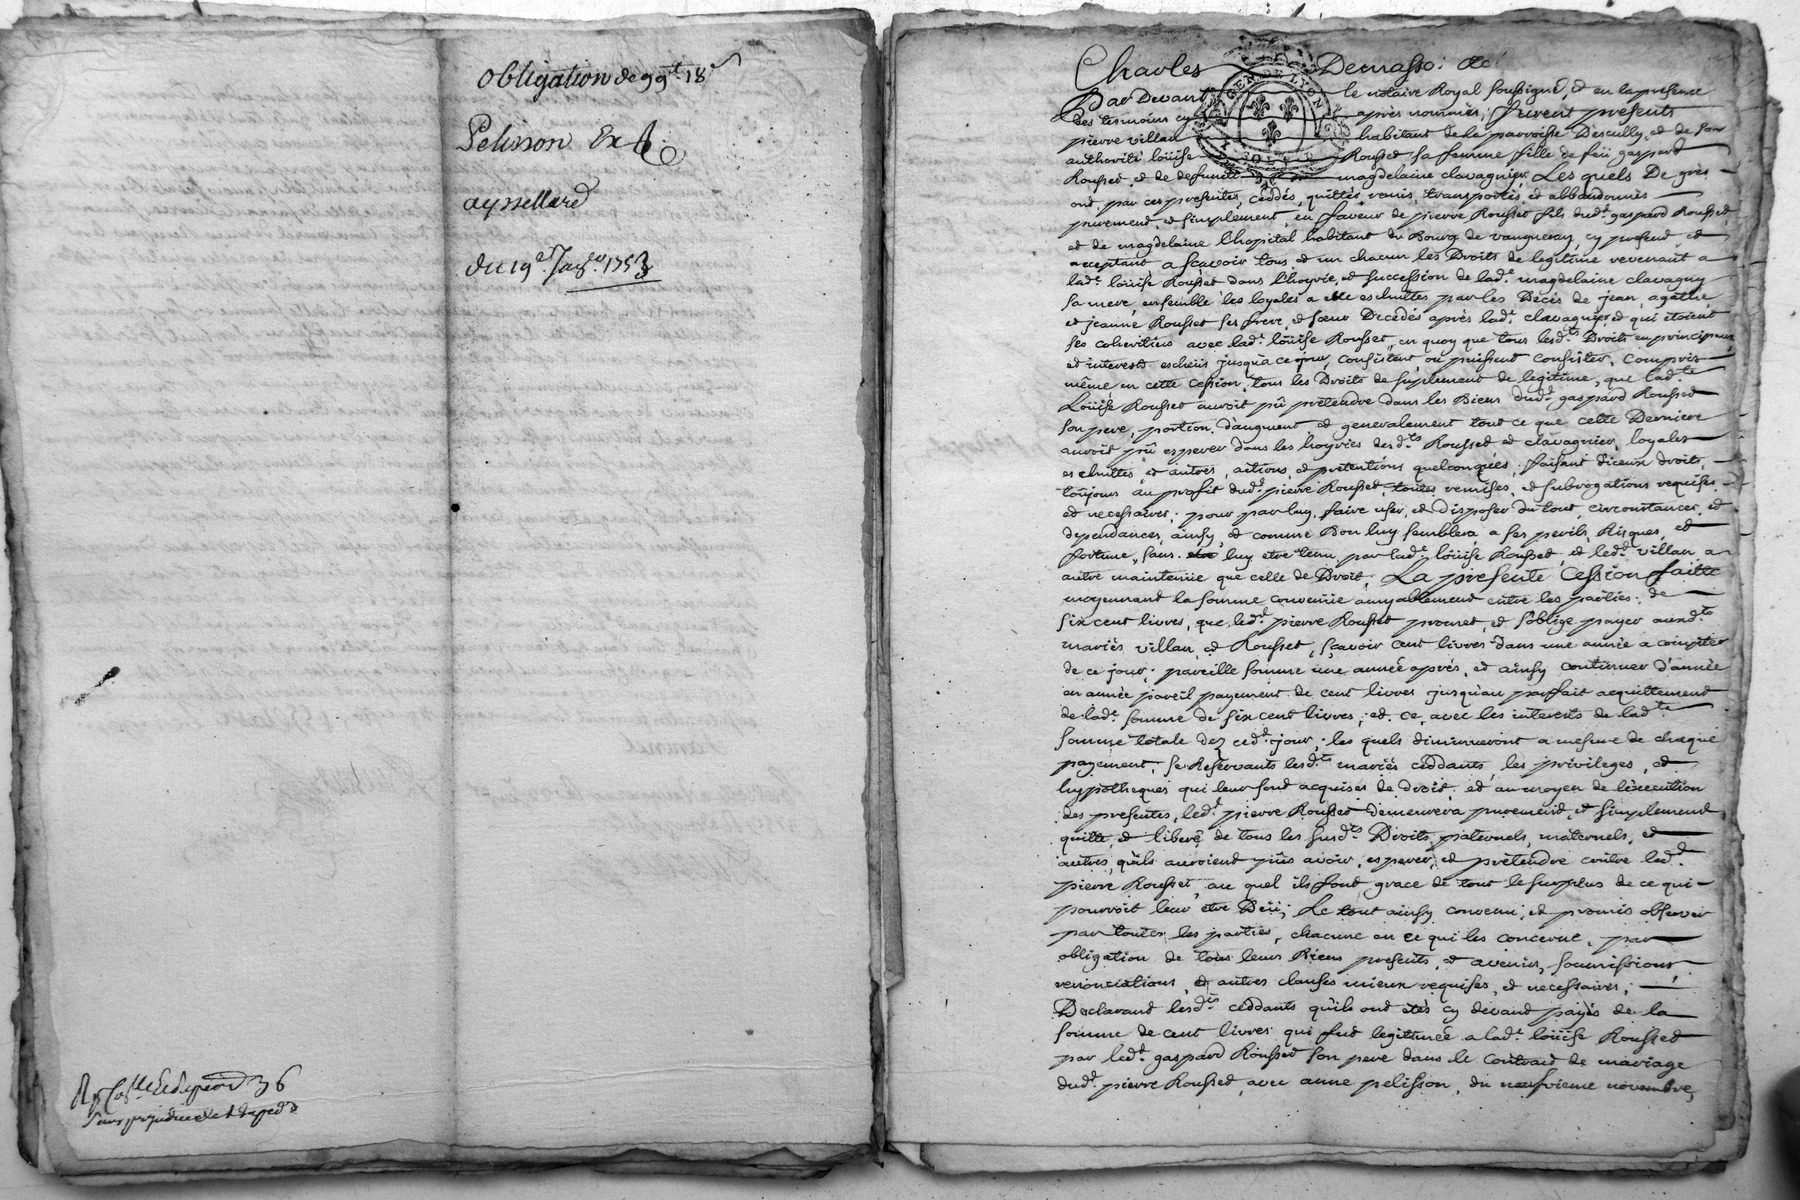 Obligation de 99lt 18s
Pelisson Ex
aysselard
du 19e Janer 1753
36
Charles Demasso: &c:
GEN DE LYON
Par Devant le notaire Royal soussigné, et en la presence
des tesmoins cy après nommés, furent présents
pierre villan habitant de la parroisse Descully, et de son
authorité loüise Rousset sa femme fille de feü gaspard
Rousset, et de defuncte magdelaine clavagnier, Les quels De grés
ont par ces presentes, ceddés, quittés, remis, transportés et abbandonnés
purement, et simplement, en faveur de pierre Rousset fils dud.t gaspard Rousset
et de magdelaine Lhopital habitant du Bourg de vaugneray, cy present, et
acceptant a sçavoir tous et un chacun les Droits de legitime revenant a
lad.e loüise Rousset dans l'hoyrie, et succession de lad.e magdelaine clavagny
sa mere, ensemble les loyales a elle eschuttes par les Décés de jean, agathe
et jeanne Rousset ses frere, et sœur Decedés après lad.e clavagnier, et qui étoient
ses cohéritiers avec lad.e loüise Rousset, en quoy que tous lesd.ts Droits en principeaux
et interests escheüs jusqu'a ce jour, consistent ou puissent consister, compris
même en cette cession, tous les Droits de suplement de legitime, que lad.te
Loüise Rousset auroit pû prétendre dans les Biens dud.t gaspard Rousset
son pere, portion d'augment et generalement tout ce que cette Derniere
auroit pû esperer dans les hoyries desd.ts Rousset et clavagnier, loyales
eschuttes, et autres, actions, et prétentions quelconques; faisant d'iceux droits,
toujours au profit dud.t pierre Rousset, toutes remises, et subrogations requises
et necessaires; pour par luy, faire user, et disposer du tout, circonstances, et
dependances, ainsy, et comme Bon luy semblera, a ses perils, Risques, et
fortune, sans luy etre tenu, par lad.e loüise Rousset, et led.t villan a
autre maintenüe que celle de Droit; La présente Cession faitte
moyennant la somme convenüe amyablement entre les parties, de
six cent livres, que led.t pierre Rousset promet, et s'oblige payer auxd.ts
mariés villan, et Rousset, sçavoir cent livres dans une année a compter
de ce jour; pareille somme une année après, et ainsy continuer d'année
en année pareil payement de cent livres jusqu'au parfait acquittement
de lad.e somme de six cent livres; et ce, avec les interests de lad.te
somme totale dez ced.t jour; les quels diminueront a mesure de chaque
payement, se Reservants lesd.ts mariés ceddants, les privileges, et
hypotheques qui leur sont acquises de Droit; et au moyen de l'exécution
des presentes, led.t pierre Rousset demeurera purement, et simplement
quitte, et liberé de tous les susd.ts Droits, paternels, maternels, et
autres, qu'ils auroient pûs avoir, esperer, et prétendre contre led.t
pierre Rousset, au quel ils font grace de tout le surplus de ce qui
pourroit leur etre Deü; Le tout ainsy convenu, et promis observer
par toutes les parties, chacune en ce qui les concerne, par
obligation de tous leurs Biens presents, et avenirs, soumissions,
renonciations, et autres clauses mieux requises, et necessaires;
Desclarant lesd.ts ceddants qu'ils ont étés cy devant payés de la
somme de cent livres qui fut legitimée a lad.e loüise Rousset
par led.t gaspard Rousset son pere dans le contrait de mariage
dud.t pierre Rousset, avec anne pelisson, du neufvieme novembre,